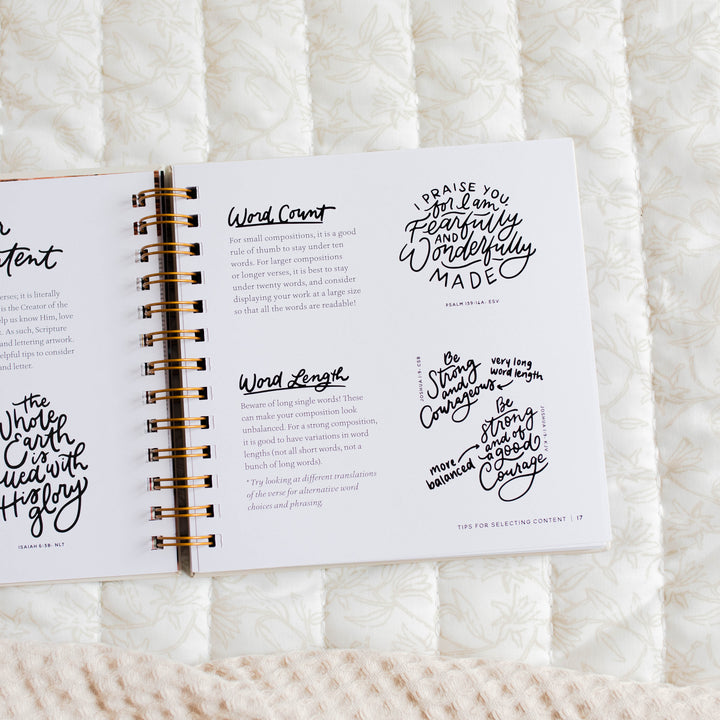 tent
erses; it is literally
is the Creator of the
lp us know Him, love
. As such, Scripture
and lettering artwork.
elpful tips to consider
nd letter.
the
Whole
Earth
is
with
His
glory
ISAIAH 6:3B- NLT
Word Count
For small compositions, it is a good
rule of thumb to stay under ten
words. For larger compositions
or longer verses, it is best to stay
under twenty words, and consider
displaying your work at a large size
so that all the words are readable!
Word Length
Beware of long single words! These
can make your composition look
unbalanced. For a strong composition,
it is good to have variations in word
lengths (not all short words, not a
bunch of long words).
*Try looking at different translations
of the verse for alternative word
choices and phrasing.
I PRAISE YOU,
for I am
Fearfully
AND
Wonderfully
MADE
PSALM 139:14A- ESV
JOSHUA 1:9, CSB
Be
Strong
and
Courageous
very long
word length
Be
strong
and of
a good
Courage
JOSHUA 1:9, KJV
more
balanced
TIPS FOR SELECTING CONTENT | 17